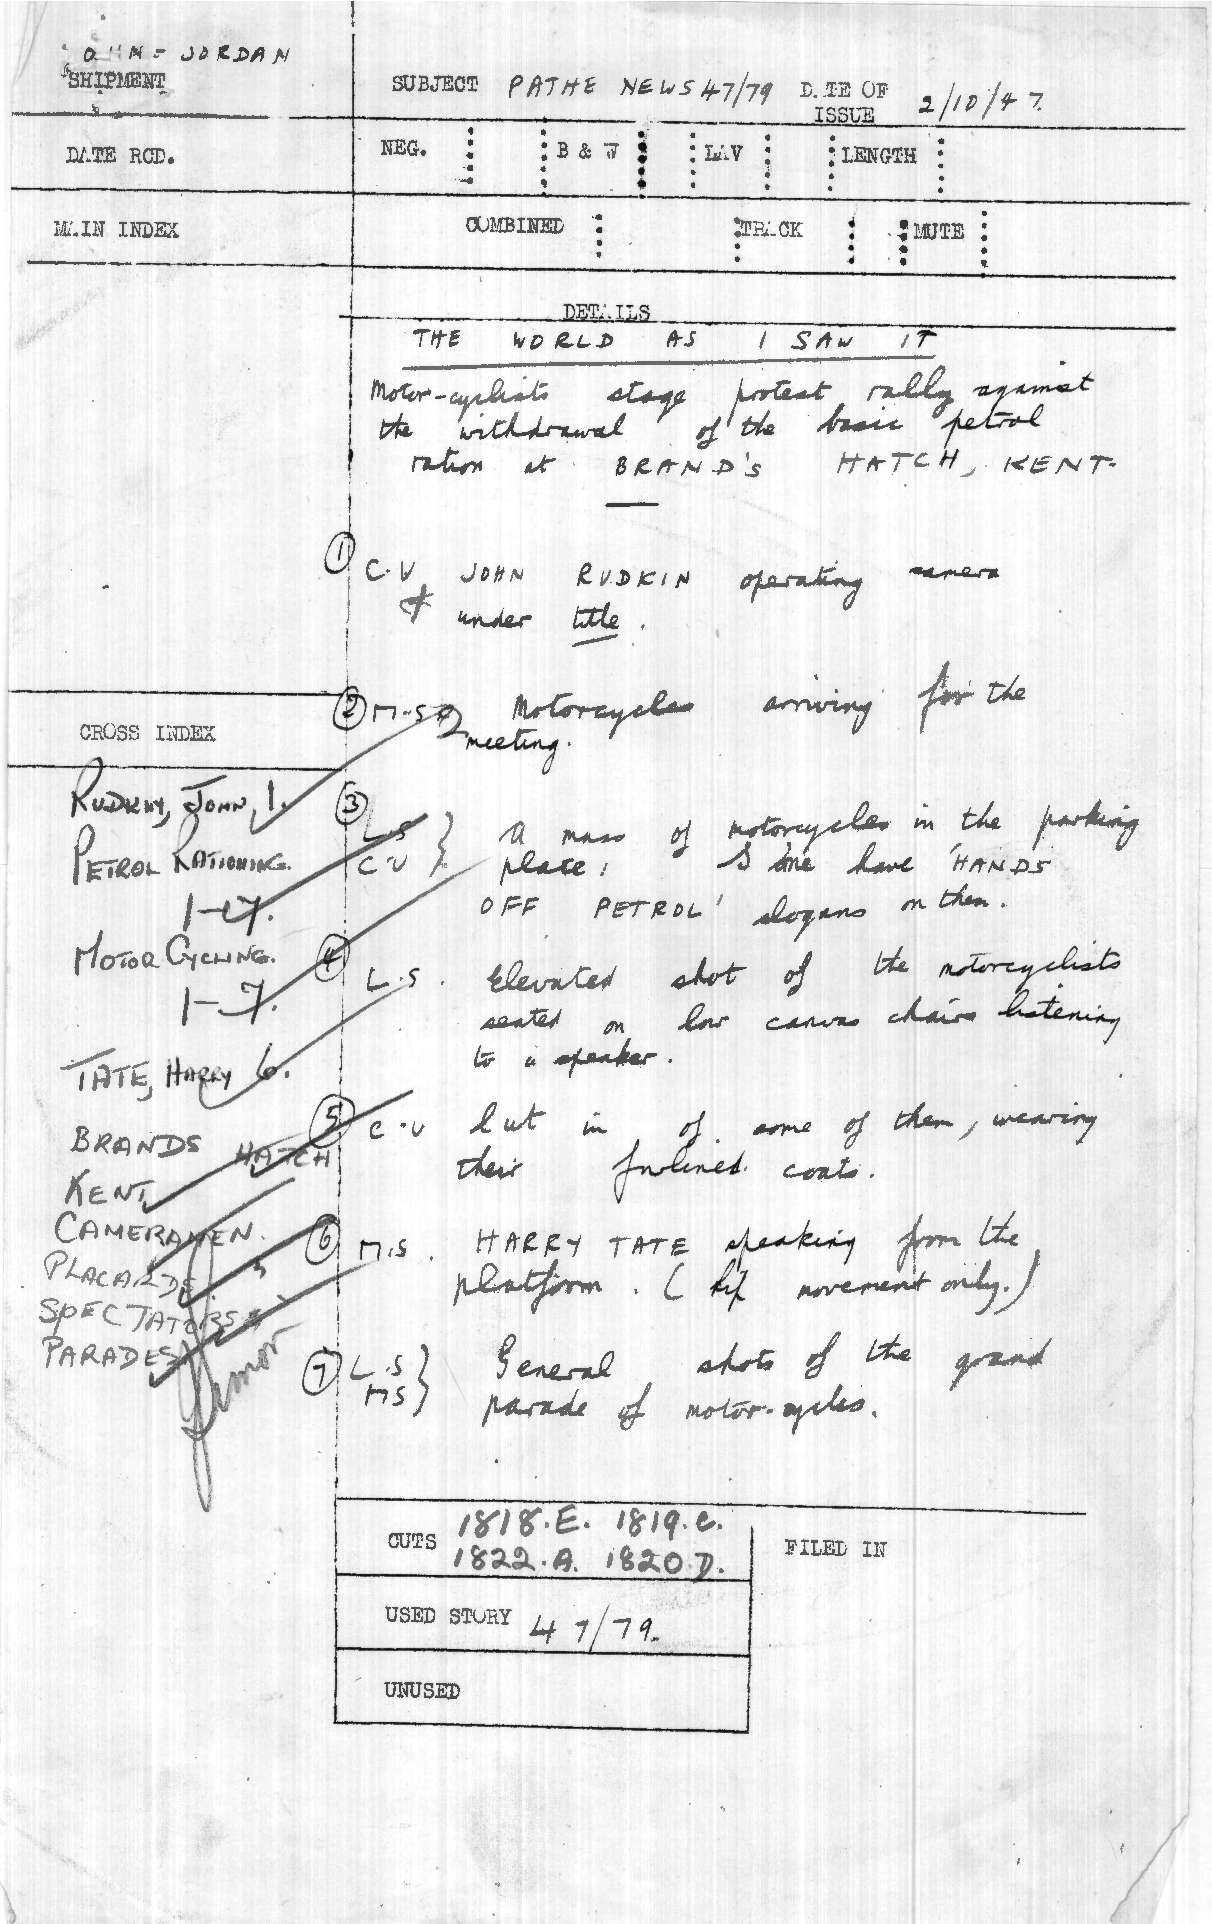 OHN = JORDAN
SHIPMENT
SUBJECT PATHE NEWS 47/79 DATE OF ISSUE 2/10/47.
DATE RCD.
NEG. B & W LAV LENGTH
MAIN INDEX
COMBINED TRACK MUTE
DETAILS
THE WORLD AS I SAW IT
Motor-cyclists stage protest rally against
the withdrawal of the basic petrol
ration at BRAND'S HATCH, KENT.
1 C.U JOHN RUDKIN operating camera
under title.
2 M.S. Motorcycles arriving for the
meeting.
3 L.S A mass of motorcycles in the parking
C.U place, Some have 'HANDS
OFF PETROL' slogans on them.
4 L.S. Elevated shot of the motorcyclists
seated on low canvas chairs listening
to a speaker.
5 C.U Cut in of some of them, wearing
their furlined coats.
6 M.S. HARRY TATE speaking from the
platform. (lip movement only.)
7 L.S General shots of the grand
MS parade of motor-cycles.
CROSS INDEX
RUDKIN, JOHN, 1.
PETROL RATIONING.
1-7.
MOTOR CYCLING.
1-7.
TATE, HARRY 6.
BRANDS HATCH
KENT
CAMERAMEN.
PLACARDS.
SPECTATORS
PARADES
CUTS 1818.E. 1819.C.
1822.A. 1820.D.
FILED IN
USED STORY 47/79.
UNUSED